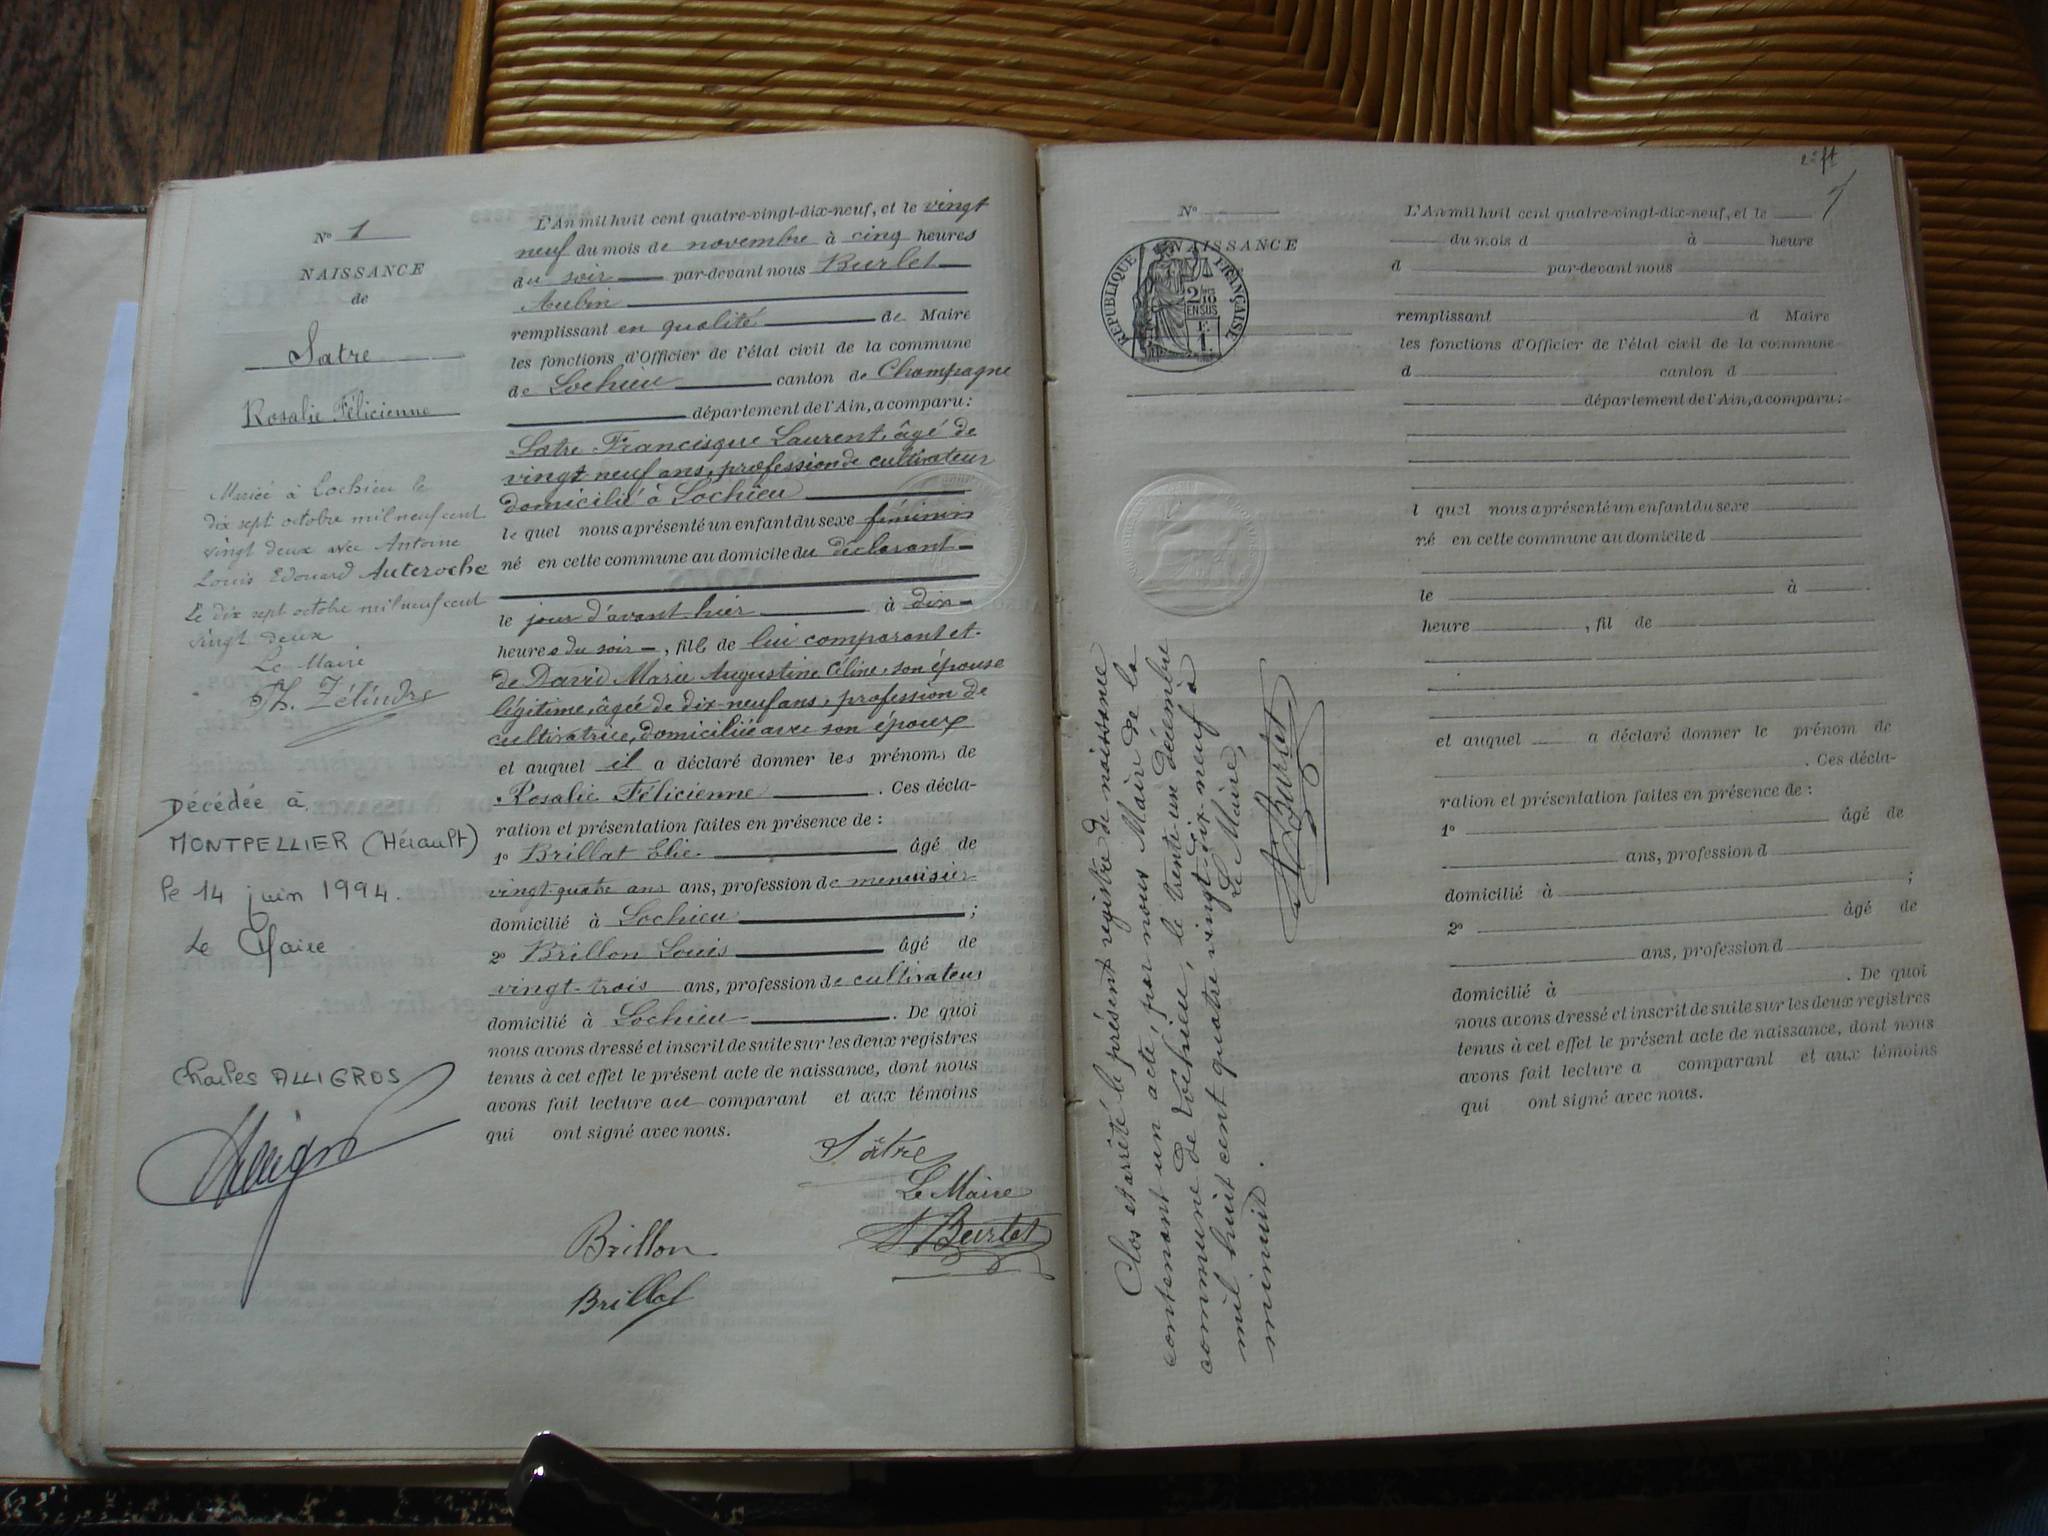 Nº 1
NAISSANCE
de
Satre
Rosalie Félicienne
Mariée à Lochieu le
dix sept octobre mil neuf cent
vingt deux avec Antoine
Louis Edouard Auteroche
Le dix sept octobre mil neuf cent
vingt deux
Le Maire
Th. Zélindre
Décédée à
MONTPELLIER (Hérault)
le 14 juin 1994.
Le Maire
Charles ALLIGROS
L'An mil huit cent quatre-vingt-dix-neuf, et le vingt
neuf du mois de novembre à cinq heures
du soir par-devant nous Burlet
Aubin
remplissant en qualité de Maire
les fonctions d'Officier de l'état civil de la commune
de Lochieu canton de Champagne
département de l'Ain, a comparu :
Satre Francisque Laurent, âgé de
vingt neuf ans, profession de cultivateur
domicilié à Lochieu
le quel nous a présenté un enfant du sexe féminin
né en cette commune au domicile du déclarant
le jour d'avant hier à dix
heures du soir, fille de lui comparant et
de David Marie Augustine Céline, son épouse
légitime, âgée de dix-neuf ans, profession de
cultivatrice, domiciliée avec son époux
et auquel il a déclaré donner les prénoms de
Rosalie Félicienne. Ces décla-
ration et présentation faites en présence de :
1º Brillat Elie âgé de
vingt-quatre ans ans, profession de menuisier
domicilié à Lochieu ;
2º Brillon Louis âgé de
vingt-trois ans, profession de cultivateur
domicilié à Lochieu. De quoi
nous avons dressé et inscrit de suite sur les deux registres
tenus à cet effet le présent acte de naissance, dont nous
avons fait lecture au comparant et aux témoins
qui ont signé avec nous.
Sâtre
Le Maire
A Burlet
Brillon
Brillat
2e ft
1
Nº
NAISSANCE
RÉPUBLIQUE FRANÇAISE
2/10
EN SUS
L'An mil huit cent quatre-vingt-dix-neuf, et le
du mois d à heure
d par-devant nous
remplissant d Maire
les fonctions d'Officier de l'état civil de la commune
d canton d
département de l'Ain, a comparu :
l quel nous a présenté un enfant du sexe
né en cette commune au domicile d
le à
heure , fil de
et auquel a déclaré donner le prénom de
. Ces décla-
ration et présentation faites en présence de :
1º âgé de
ans, profession d
domicilié à ;
2º âgé de
ans, profession d
domicilié à . De quoi
nous avons dressé et inscrit de suite sur les deux registres
tenus à cet effet le présent acte de naissance, dont nous
avons fait lecture a comparant et aux témoins
qui ont signé avec nous.
Clos et arrêté le présent registre de naissance
contenant un acte, par nous Maire de la
commune de Lochieu, le trente-un décembre
mil huit cent quatre vingt-dix-neuf à
minuit.
Le Maire,
A Burlet